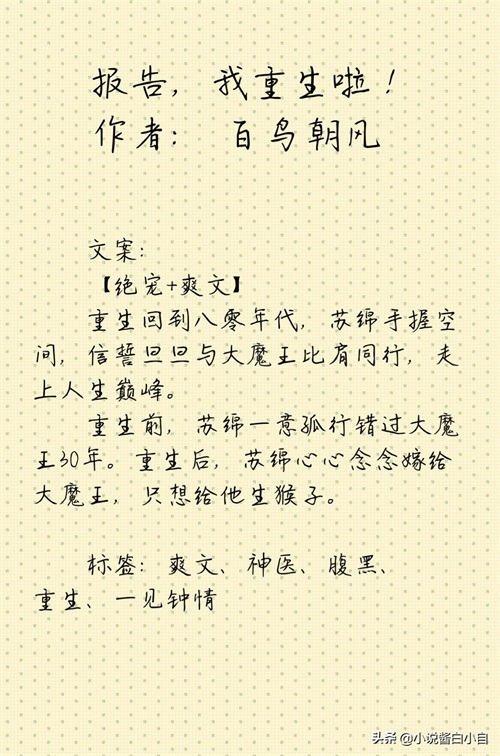 报告，我重生啦！
作者： 百鸟朝风
文案：
【绝宠+爽文】
重生回到八零年代，苏绵手握空
间，信誓旦旦与大魔王比肩同行，走
上人生巅峰。
重生前，苏绵一意孤行错过大魔
王30年。重生后，苏绵心心念念嫁给
大魔王，只想给他生猴子。
标签：爽文、神医、腹黑、
重生、一见钟情
头条 @小说酱白小自